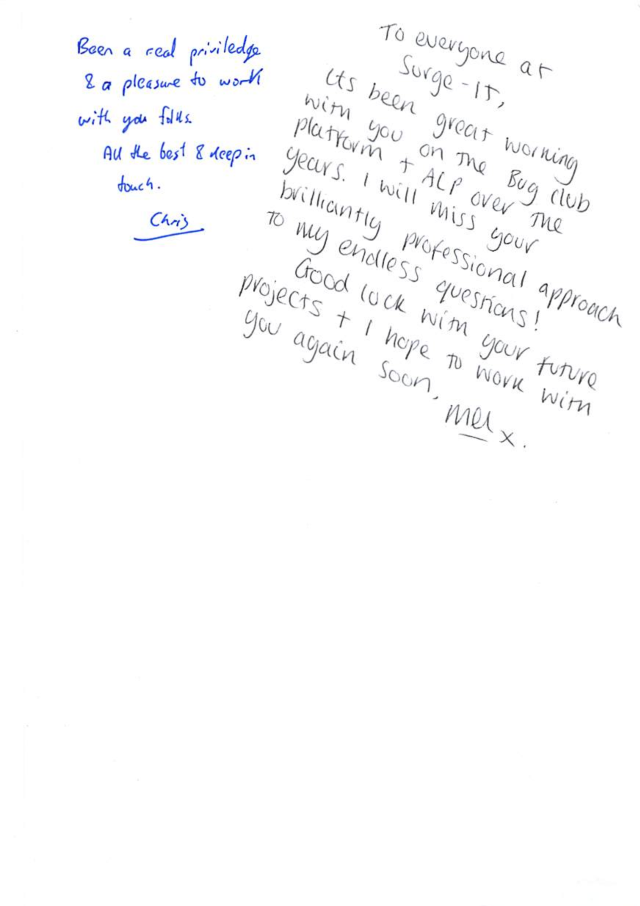 Been a real priviledge
& a pleasure to work
with you folks.
All the best & keep in
touch.
Chris
To everyone at
Surge-IT,
Its been great working
with you on the Bug club
platform + ALP over the
years. I will miss your
brilliantly professional approach
to my endless questions!
Good luck with your future
projects + I hope to work with
you again soon,
Mel x.